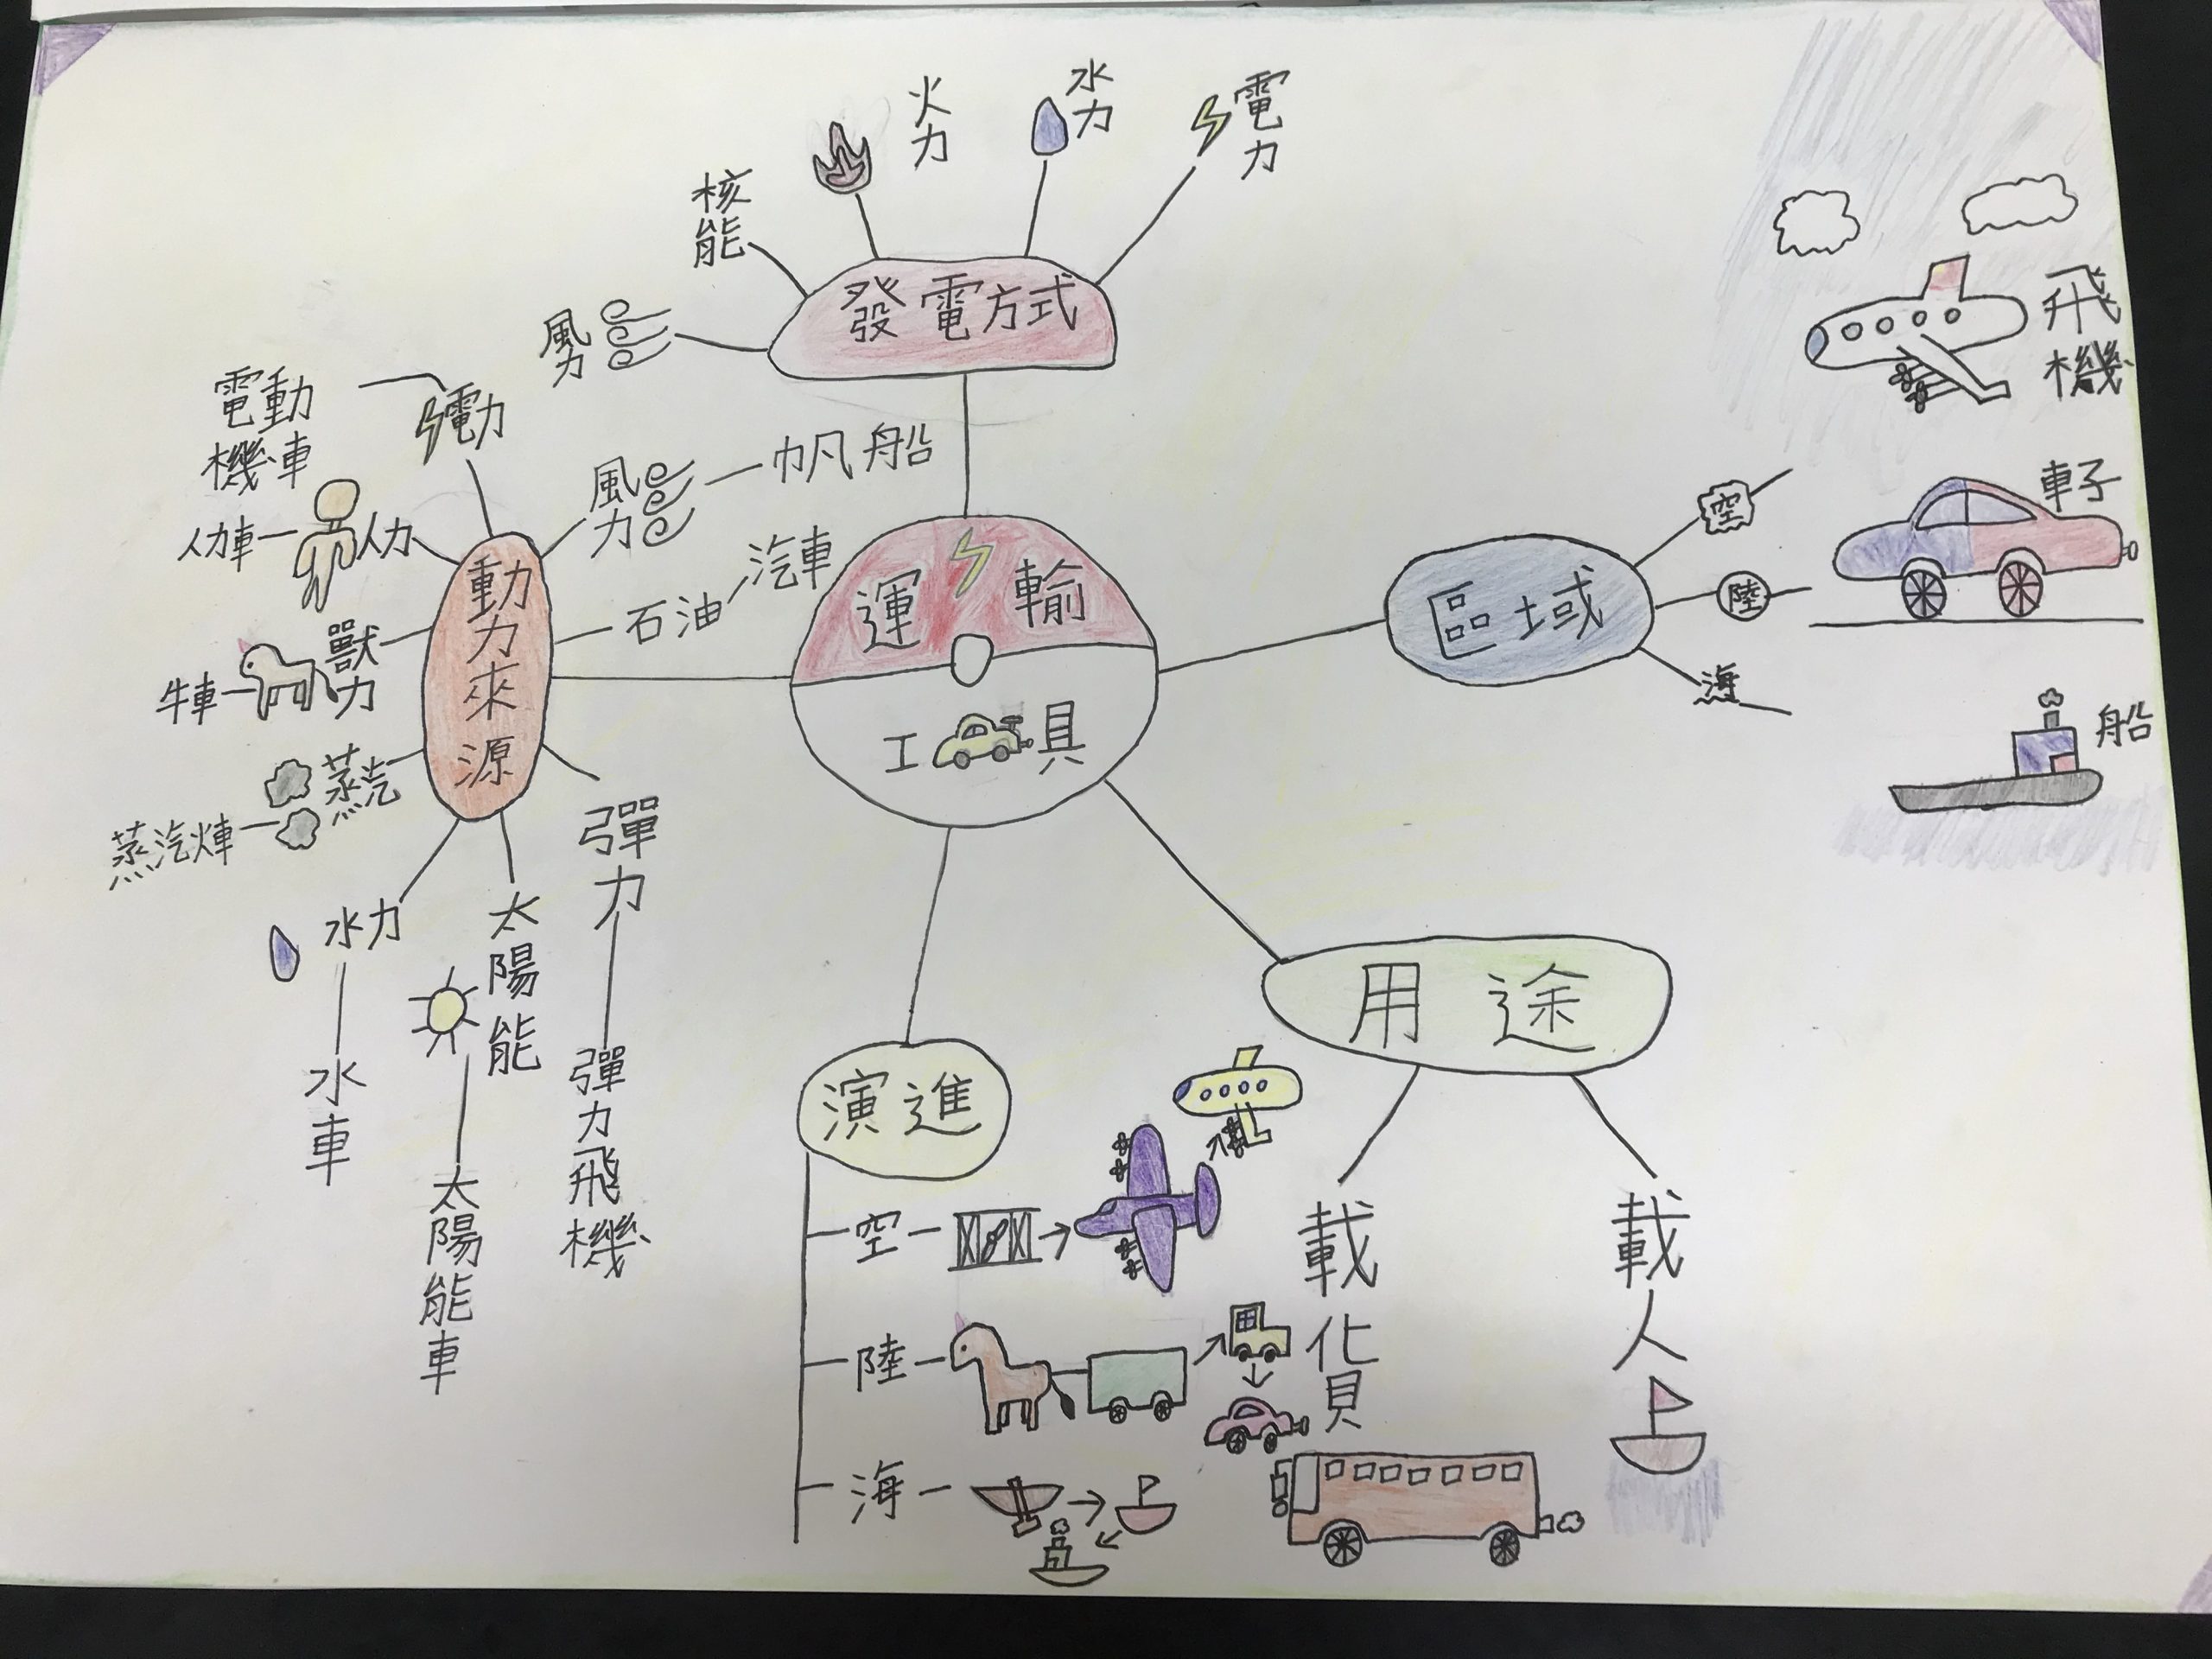 火力
水力
電力
核能
風力
發電方式
電動
機車
電力
風力
帆船
人力車
人力
石油
汽車
牛車
獸力
動力來源
蒸汽
運輸
工具
區域
空
陸
海
飛機
車子
船
水力
水車
太陽能
太陽能車
彈力
彈力飛機
演進
空
陸
海
用途
載
載人